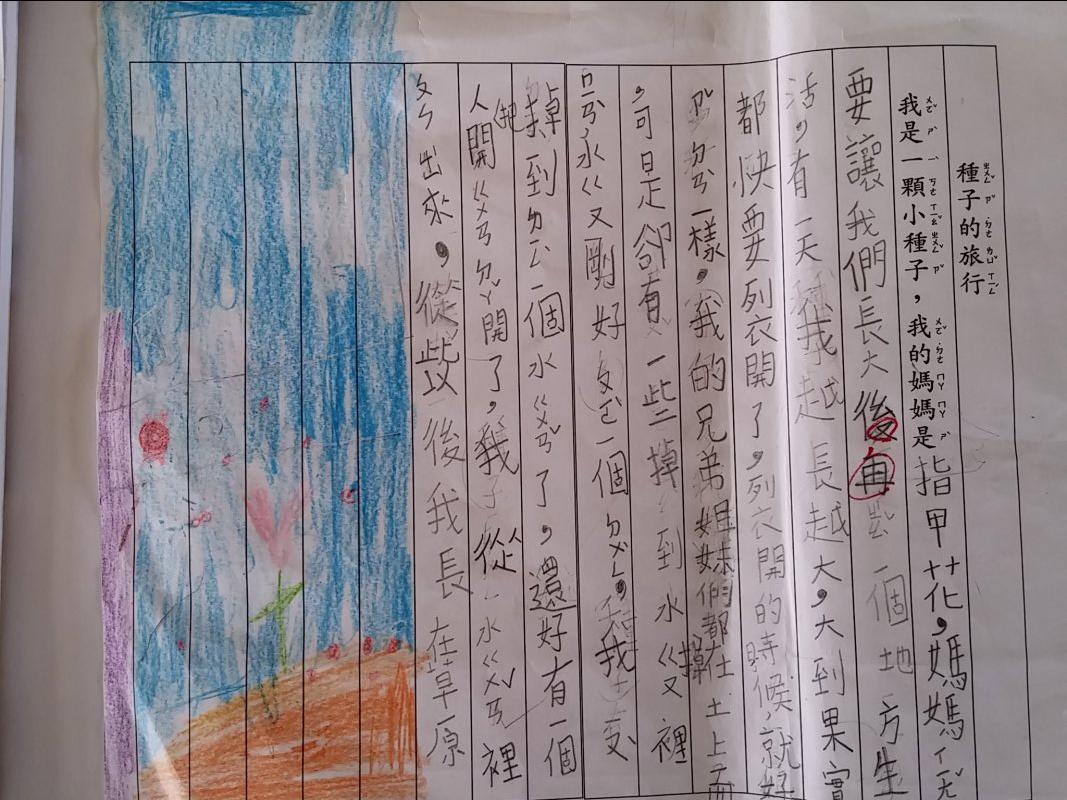 種子的旅行
我是一顆小種子，我的媽媽是指甲花，媽媽ㄒㄧㄤˇ
要讓我們長大後再一個地方生
活，有一天我越長越大，大到果實
都快要列衣開了，列衣開的時候，就好
ㄕˇㄉㄢˋ一樣，我的兄弟姐妹們都掉在土上面
，可是卻有一些掉到水ㄍㄡ裡
ㄇㄢˇ水ㄍㄡ剛好有一個ㄉㄨㄥˋ，我
掉到ㄉㄥˇ一個水ㄍㄨㄢˇ了，還好有一個
人他開ㄍㄨㄢ ㄉㄚˇ開了，我從水ㄍㄨㄢˇ裡
ㄆㄣ出來，從此以後我長在草原